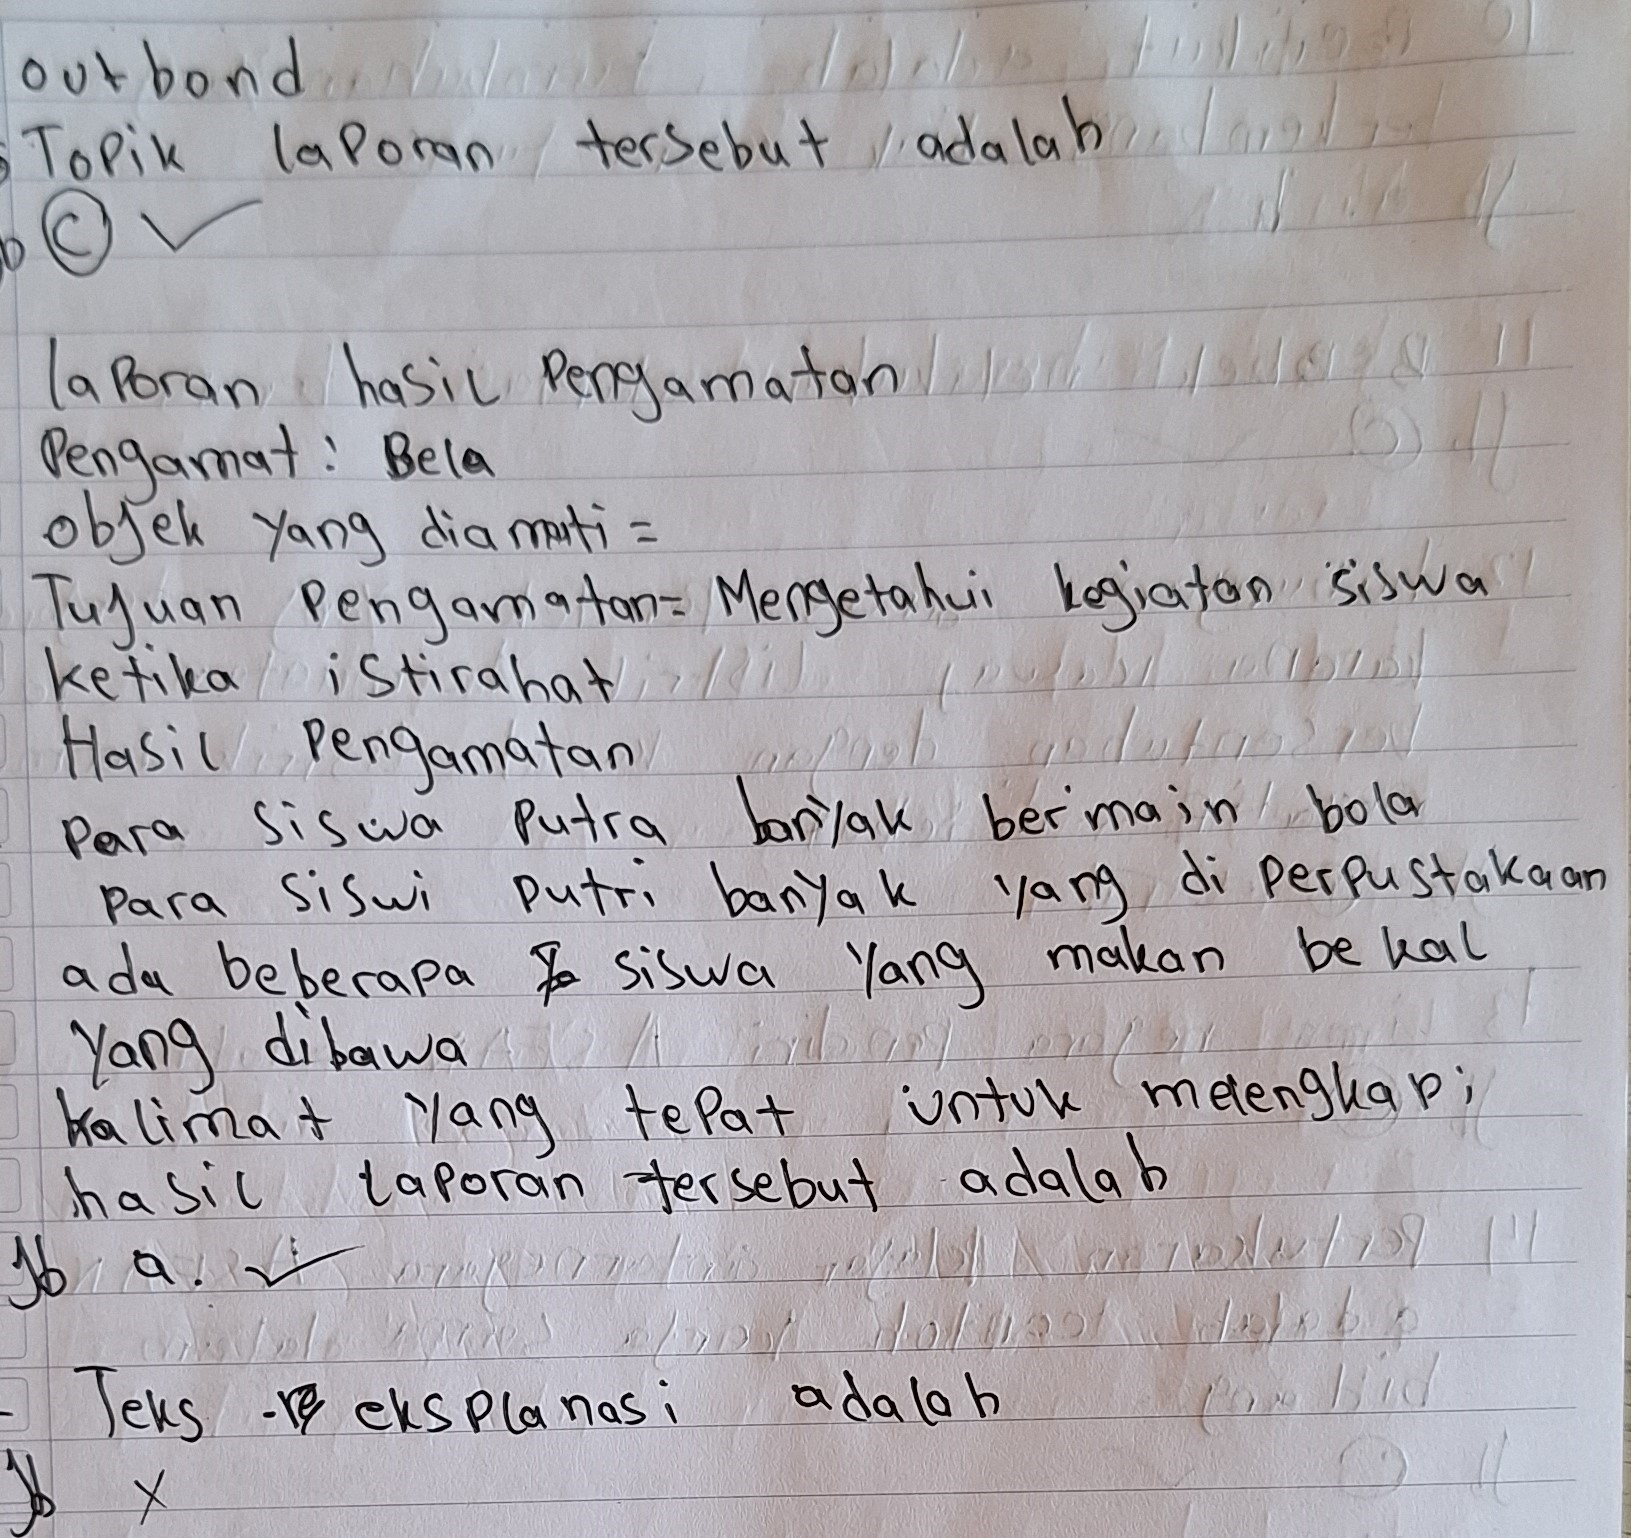 outbond
Topik laporan tersebut adalah
b Ⓒ ✓
laporan hasil Pengamatan
Pengamat: Bela
objek yang diamati =
Tujuan Pengamatan= Mengetahui kegiatan siswa
ketika istirahat
Hasil Pengamatan
Para siswa Putra banyak bermain bola
para siswi putri banyak yang di perpustakaan
ada beberapa siswa yang makan bekal
yang dibawa
kalimat yang tepat untuk melengkapi
hasil laporan tersebut adalah
Jb a. ✓
Teks eksplanasi adalah
Jb X